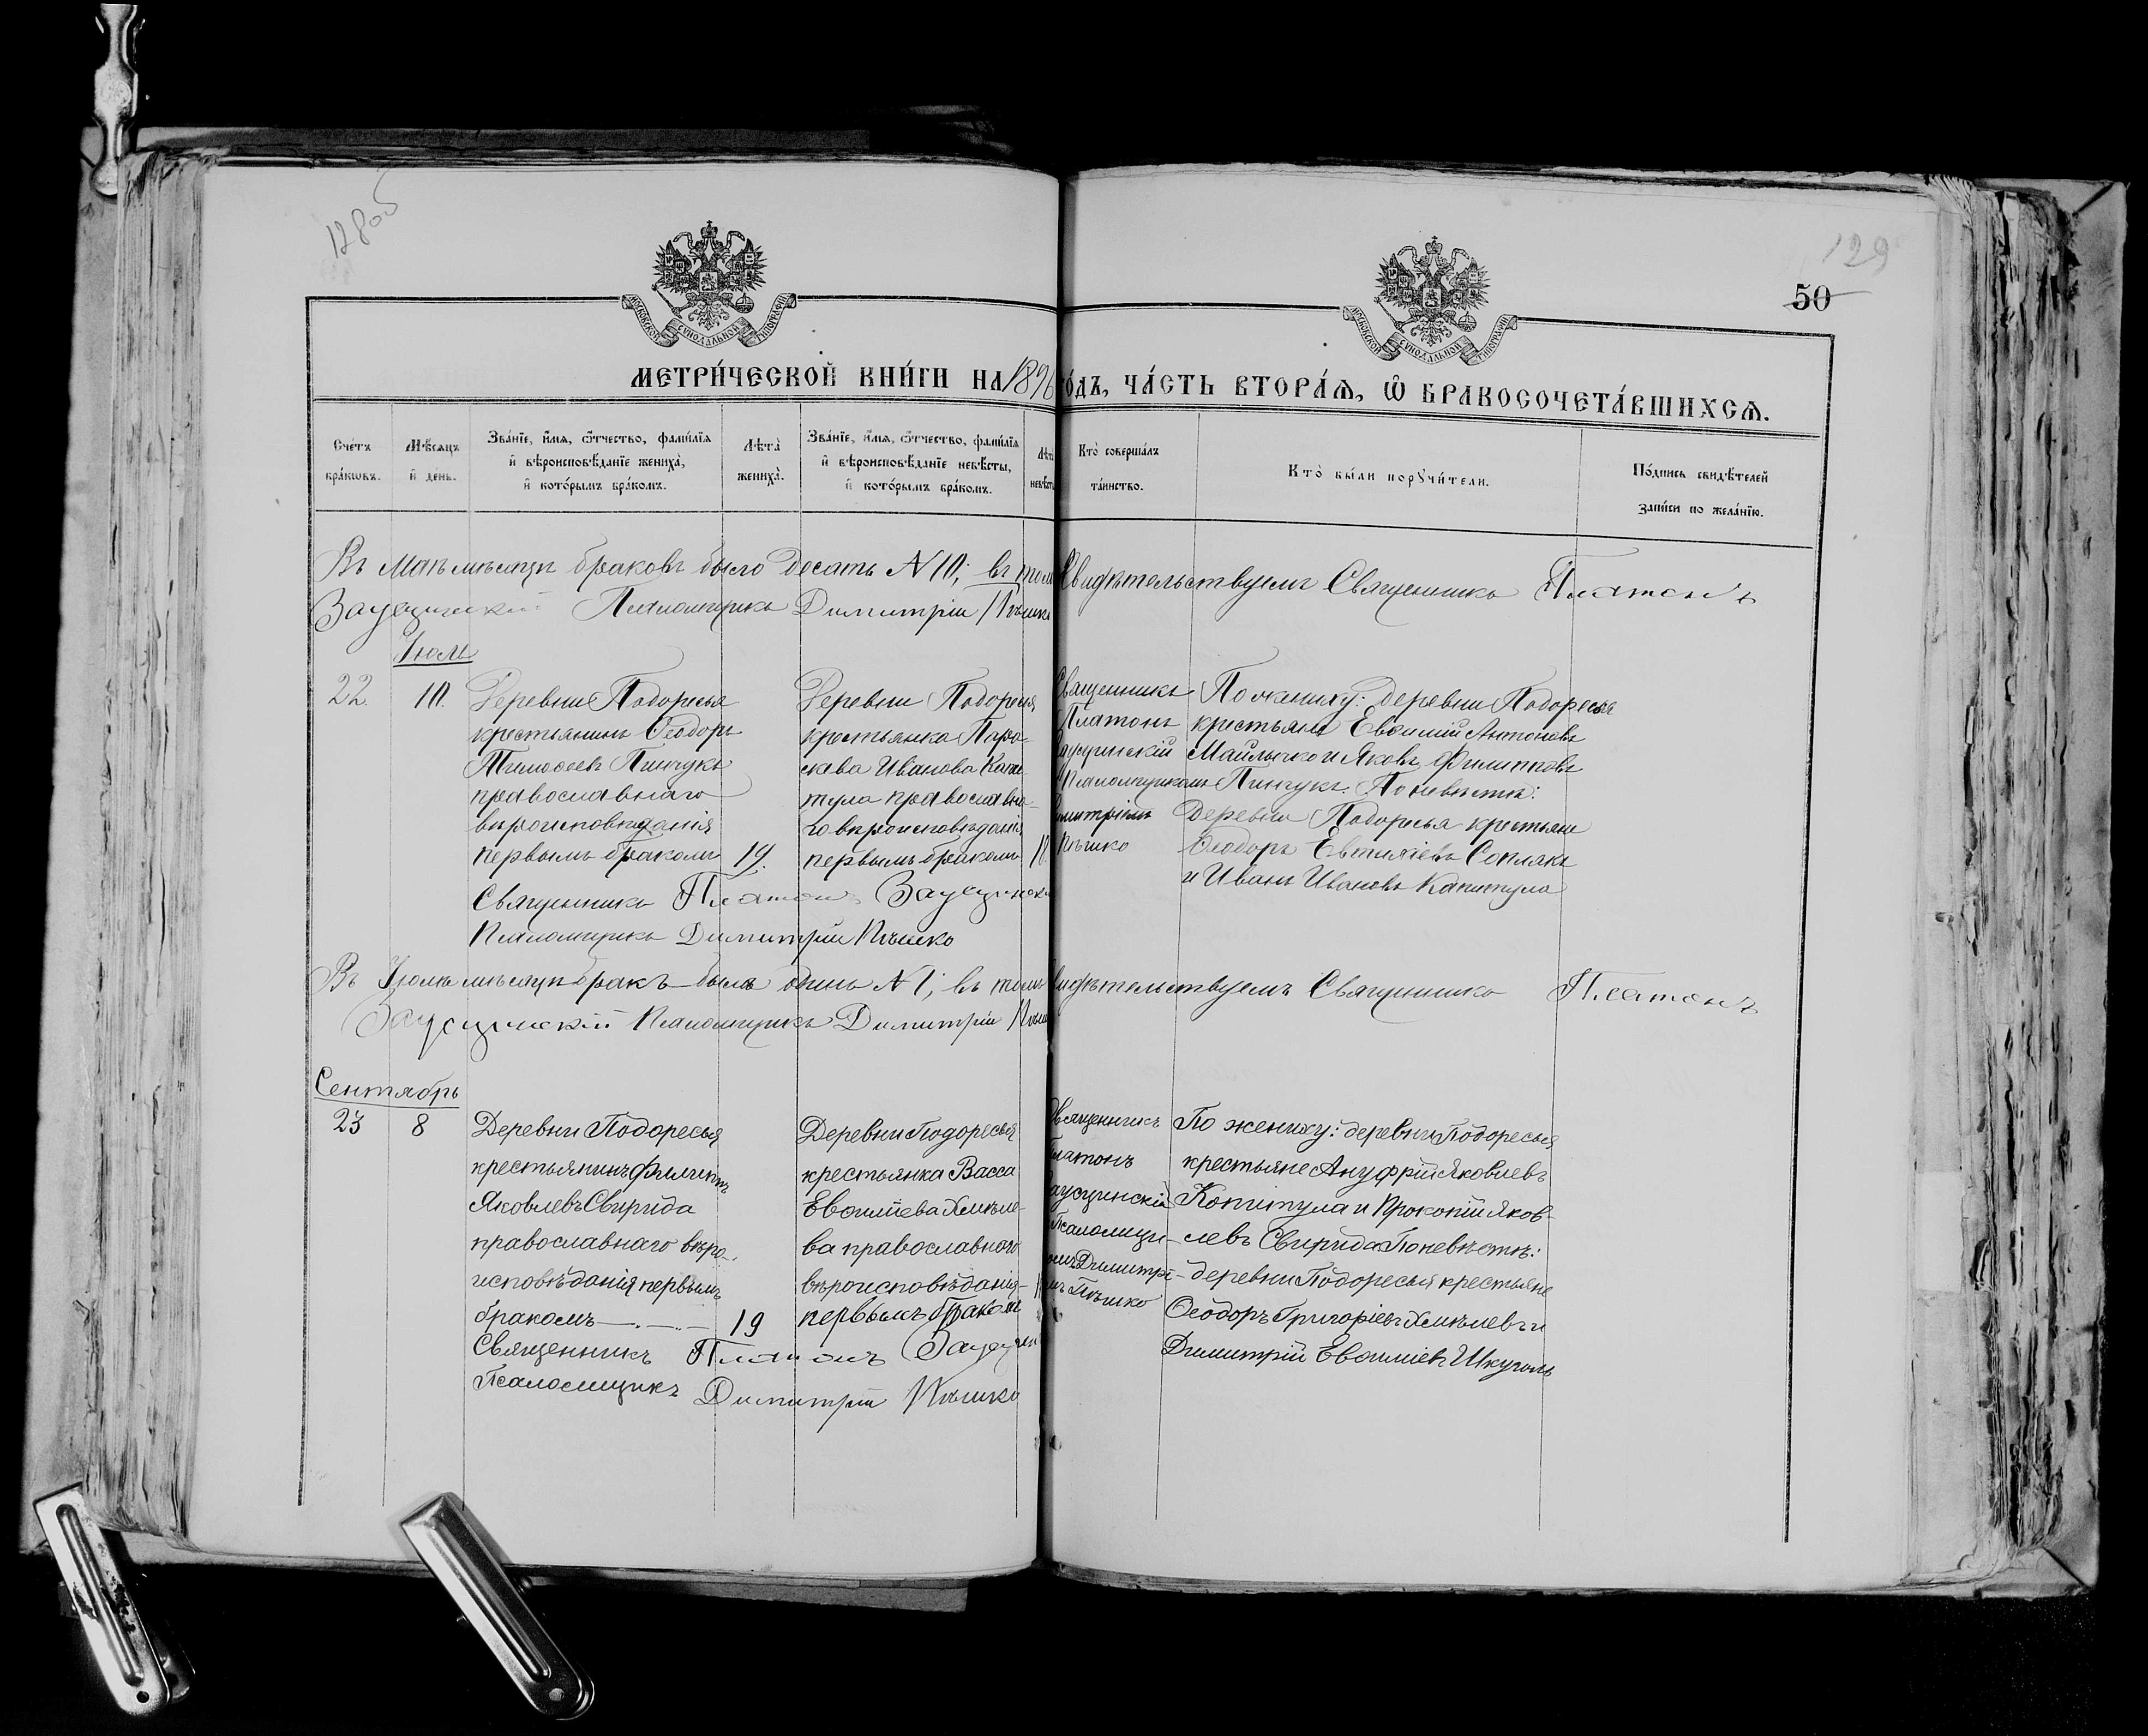 128об
129
50
МОСКОВСКОЙ СѴНОДАЛЬНОЙ ТИПОГРАФІИ
МОСКОВСКОЙ СѴНОДАЛЬНОЙ ТИПОГРАФІИ
МЕТРИ́ЧЕСКОЙ КНИ́ГИ НА 1896 ГО́ДЪ, ЧА́СТЬ ВТОРА́Ѧ, Ѡ҆ БРАКОСОЧЕТА́ВШИХСѦ.
Сче́тъ бра́кѡвъ.
Мѣ́сѧцъ и҆ де́нь.
Зва́нїе, и҆́мѧ, ѻ҆́тчество, фами́лїѧ
и҆ вѣроисповѣ́данїе жениха̀,
и҆ кото́рымъ бра́комъ.
Лѣта̀ жениха̀.
Зва́нїе, и҆́мѧ, ѻ҆́тчество, фами́лїѧ
и҆ вѣроисповѣ́данїе невѣ́сты,
и҆ кото́рымъ бра́комъ.
Лѣта̀ невѣ́сты
Кто̀ соверша́лъ
та́инство.
Кто̀ бы́ли порꙋчи́тели.
По́дпись свидѣ́телей
за́писи по жела́нїю.
Въ Маѣ мѣсяцѣ браковъ было десять N 10; въ томъ свидѣтельствуемъ Священникъ Платонъ
Заусцинскій Псаломщикъ Димитрій Пѣшко
Іюль
22.
10.
Деревни Подоресья
крестьянинъ Ѳеодоръ
Тимоѳеевъ Пинчукъ
православнаго
вѣроисповѣданія
первымъ бракомъ
19.
Деревни Подоресья
крестьянка Пара-
скева Иванова Капи-
тула православна-
го вѣроисповѣданія
первымъ бракомъ
Священникъ
Платонъ
Заусцинскій
Псаломщикомъ
Димитріемъ
Пѣшко
По жениху: деревни Подоресья
крестьяне Евѳимій Антоновъ
Майлычко и Яковъ Филипповъ
Пинчукъ. По невѣстѣ:
деревни Подоресья крестьяне
Ѳеодоръ Евтихіевъ Сопляк
и Иванъ Ивановъ Капитула
Священникъ Платонъ Заусцинскій
Псаломщикъ Димитрій Пѣшко
Въ Іюлѣ мѣсяцѣ бракъ былъ одинъ N 1; въ томъ свидѣтельствуемъ Священникъ Платонъ
Заусцинскій Псаломщикъ Димитрій Пѣшко
Сентябрь
23
8
Деревни Подоресья
крестьянинъ Филиппъ
Яковлевъ Свирида
православнаго вѣро-
исповѣданія первымъ
бракомъ
19
Деревни Подоресья
крестьянка Васса
Евѳиміева Хмѣле-
ва православнаго
вѣроисповѣданія
первымъ бракомъ
Священникъ
Платонъ
Заусцинскій
Псаломщи-
комъ Димитрі-
емъ Пѣшко
По жениху: деревни Подоресья
крестьяне Ануфрій Яковлевъ
Копитула и Прокопій Яков-
левъ Свирида. По невѣстѣ:
деревни Подоресья крестьяне
Ѳеодоръ Григоріевъ Хмѣлевъ и
Димитрій Евѳиміевъ Шкуголь
Священникъ Платонъ Заусцин
Псаломщикъ Димитрій Пѣшко